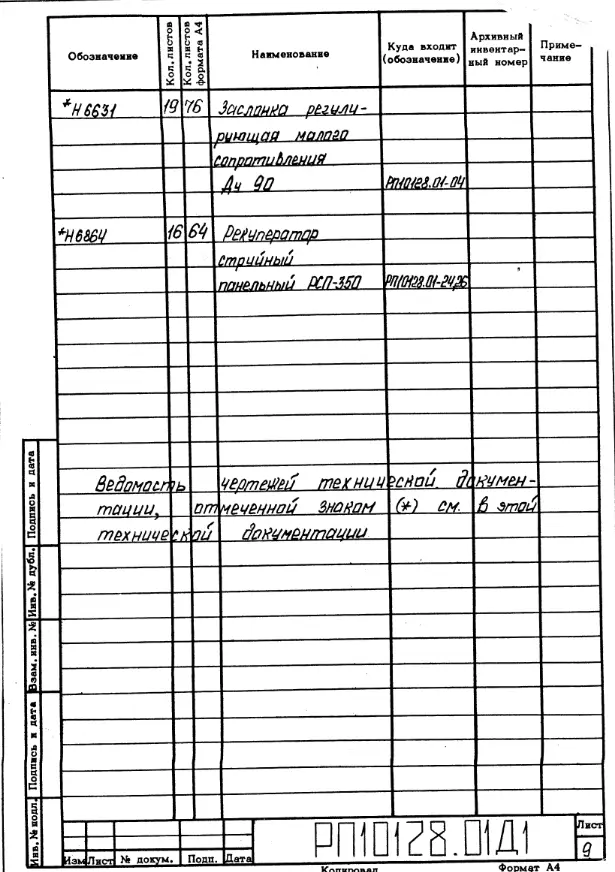 Обозначение
Кол. листов
Кол. листов формата А4
Наименование
Куда входит (обозначение)
Архивный инвентар-ный номер
Приме-чание
*Н6631 19 76 Заслонка регули-
рующая малого
сопротивления
Ду 90 РП10128.01-04
*Н6864 16 64 Рекуператор
струйный
панельный РСП-350 РП10128.01-24,26
Ведомость чертежей технической докумен-
тации, отмеченной знаком (*) см. в этой
технической документации
Подпись и дата
Инв. № дубл.
Взам. инв. №
Подпись и дата
Инв. № подл.
Изм Лист № докум. Подп. Дата
РП10128.01Д1
Лист
9
Копировал Формат А4